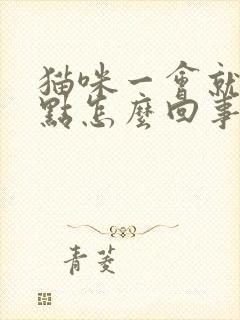 猫咪一會就
點怎麼回事
青菱